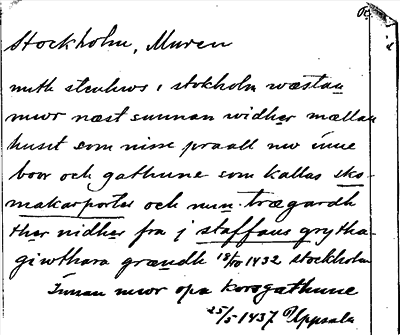 Stockholm, Muren
mith stenhws i stokholm wæstan
mwr næst sunnan widher mællan
huset som nisse praall nw inne
boor och gathune som kallas sko-
makarporten och min trægardh
ther nidher fra j staffans grytha-
giwthara grændh 18/10 1432 Stockholm
Innan mwr opa korsgathune
25/5 1437 Uppsala